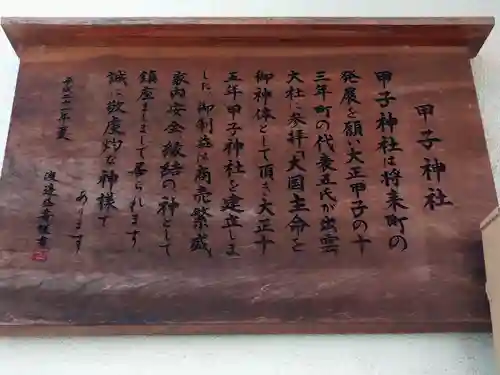 甲子神社
甲子神社は将来町の
発展を願い大正甲子の十
三年町の代表五氏が出雲
大社に参拝「大国主命」を
御神体として頂き大正十
五年甲子神社を建立しま
した 御利益は商売繁盛
家内安全縁結の神として
鎮座ましまして居られます
誠に敬虔妙な神様で
あります
平成二十一年夏
渡邉